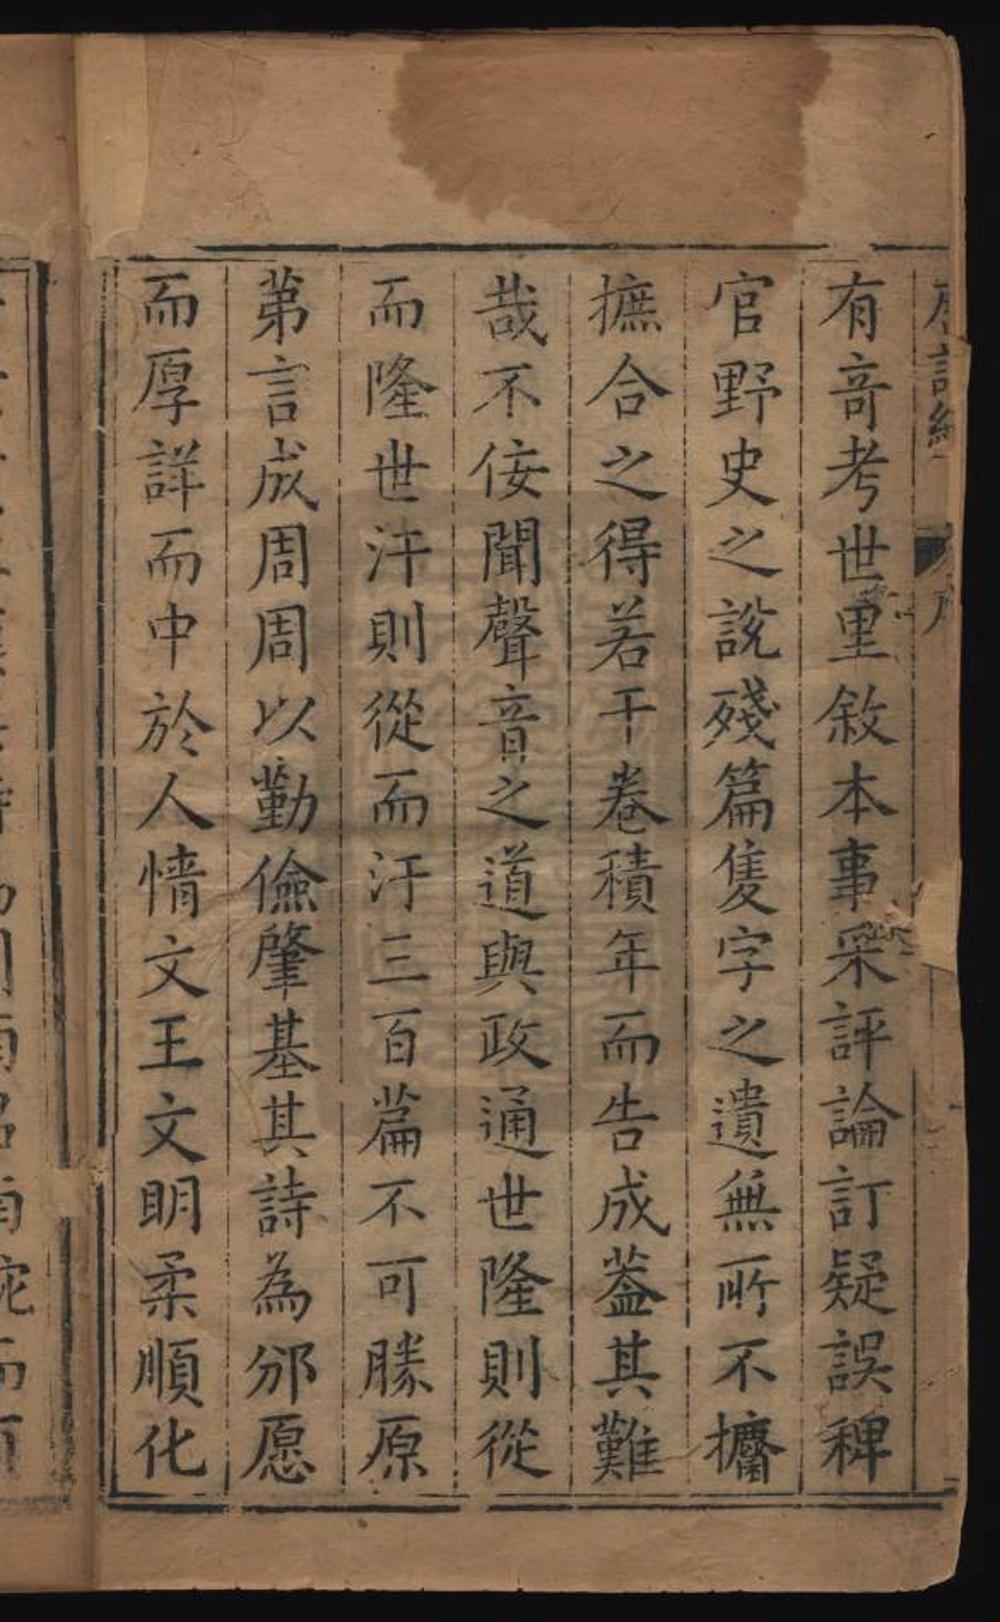 有奇考世里敘本事采評論訂疑誤稗
官野史之說殘篇隻字之遺無所不攟
摭合之得若干卷積年而告成葢其難
哉不佞聞聲音之道與政通世隆則從
而隆世汙則從而汙三百篇不可勝原
第言成周周以勤儉肇基其詩為邠愿
而厚詳而中於人情文王文明柔順化